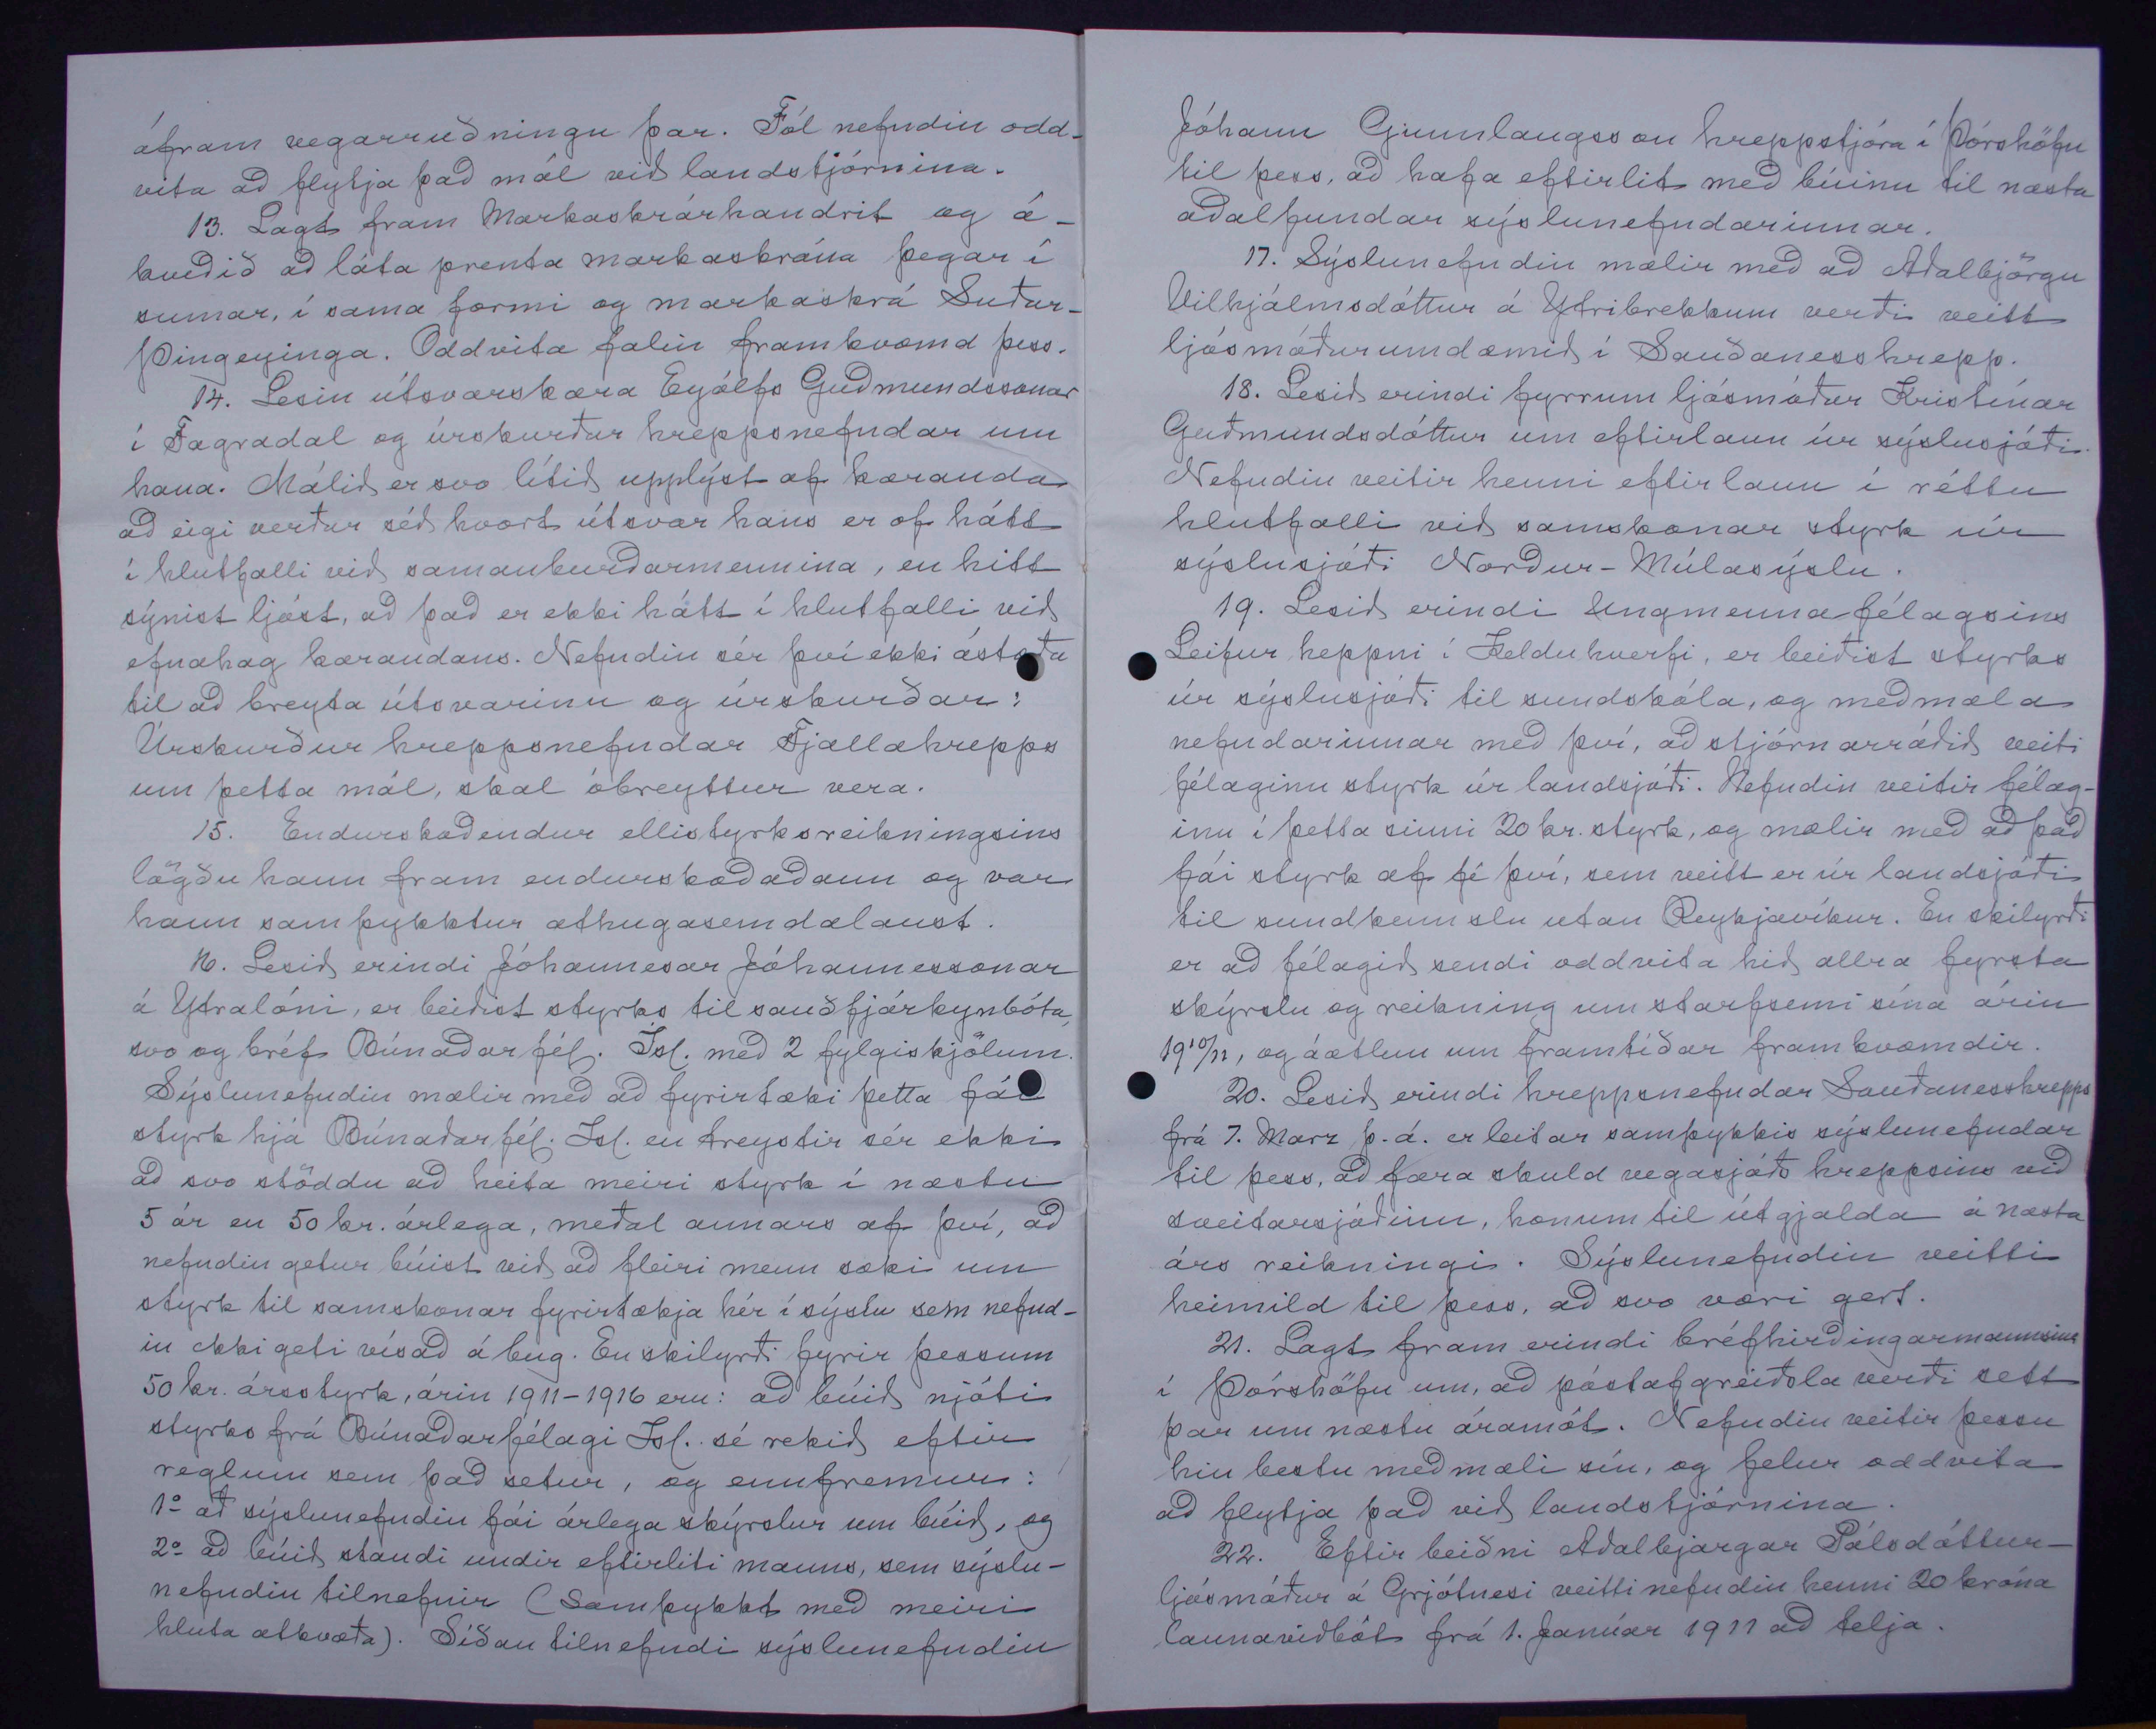 áfram vegarruðningu þar. Fól nefndin odd-
vita að flytja það mál við landstjórnina.
13. Lagt fram Markaskrárhandrit og á-
kveðið að láta prenta markaskrána þegar í
sumar, í sama formi og markaskrá Suður-
Þingeyinga. Oddvita falin framkvæmd þess.
14. Lesin útsvarskæra Eyjólfs Guðmundssonar
í Fagradal og úrskurður hreppsnefndar um
hana. Málið er svo lítið upplýst af kæranda
að eigi verður séð hvort útsvar hans er of hátt
í hlutfalli við samanburðarmennina, en hitt
sýnist ljóst, að það er ekki hátt í hlutfalli við
efnahag kærandans. Nefndin sér því ekki ástæðu
til að breyta útsvarinu og úrskurðar:
Úrskurður hreppsnefndar Fjallahrepps
um þetta mál, skal óbreyttur vera.
15. Endurskoðendur ellistyrksreikningsins
lögðu hann fram endurskoðaðann og var
hann samþykktur athugasemdalaust.
16. Lesið erindi Jóhannesar Jóhannessonar
á Ytralóni, er beiðist styrks til sauðfjárkynbóta,
svo og bréf Búnaðarfél. Ísl. með 2 fylgiskjölum.
Sýslunefndin mælir með að fyrirtæki þetta fái
styrk hjá Búnaðarfél. Ísl. en treystir sér ekki
að svo stöddu að heita meiri styrk í næstu
5 ár en 50 kr. árlega, meðal annars af því, að
nefndin getur búist við að fleiri menn sæki um
styrk til samskonar fyrirtækja hér í sýslu sem nefnd-
in ekki geti vísað á bug. En skilyrði fyrir þessum
50 kr. ársstyrk, árin 1911-1916 eru: að búið njóti
styrks frá Búnaðarfélagi Ísl. sé rekið eftir
reglum sem það setur, og ennfremur:
1º að sýslunefndin fái árlega skýrslur um búið, og
2º að búið standi undir eftirliti manns, sem sýslu-
nefndin tilnefnir (Samþykkt með meiri
hluta atkvæða). Síðan tilnefndi sýslunefndin
Jóhann Gunnlaugsson hreppstjóra í Þórshöfn
til þess, að hafa eftirlit með búinu til næsta
aðalfundar sýslunefndarinnar.
17. Sýslunefndin mælir með að Aðalbjörgu
Vilhjálmsdóttur á Ytribrekkum verði veitt
ljósmóðurumdæmið í Sauðanesshrepp.
18. Lesið erindi fyrrum ljósmóður Kristínar
Guðmundsdóttur um eftirlaun úr sýslusjóði.
Nefndin veitir henni eftirlaun í réttu
hlutfalli við samskonar styrk úr
sýslusjóði Norður-Múlasýslu.
19. Lesið erindi Ungmennafélagsins
Leifur heppni í Kelduhverfi, er beiðist styrks
úr sýslusjóði til sundskóla, og meðmæla
nefndarinnar með því, að stjórnarráðið veiti
félaginu styrk úr landsjóði. Nefndin veitir félag-
inu í þetta sinni 20 kr. styrk, og mælir með að það
fái styrk af fé því, sem veitt er úr landsjóði
til sundkennslu utan Reykjavíkur. En skilyrði
er að félagið sendi oddvita hið allra fyrsta
skýrslu og reikning um starfsemi sína árin
1910/11, og áætlun um framtíðar framkvæmdir.
20. Lesið erindi hreppsnefndar Sauðanesshrepps
frá 7. Marz þ.á. er leitar samþykkis sýslunefndar
til þess, að færa skuld vegasjóðs hreppsins við
sveitarsjóðinn, honum til útgjalda á næsta
árs reikningi. Sýslunefndin veitti
heimild til þess, að svo væri gert.
21. Lagt fram erindi bréfhirðingarmannsins
í Þórshöfn um, að póstafgreiðsla verði sett
þar um næstu áramót. Nefndin veitir þessu
hin bestu meðmæli sín, og felur oddvita
að flytja það við landstjórnina.
22. Eftir beiðni Aðalbjargar Pálsdóttur-
ljósmóður á Grjótnesi veitti nefndin henni 20 króna
launaviðbót frá 1. Janúar 1911 að telja.